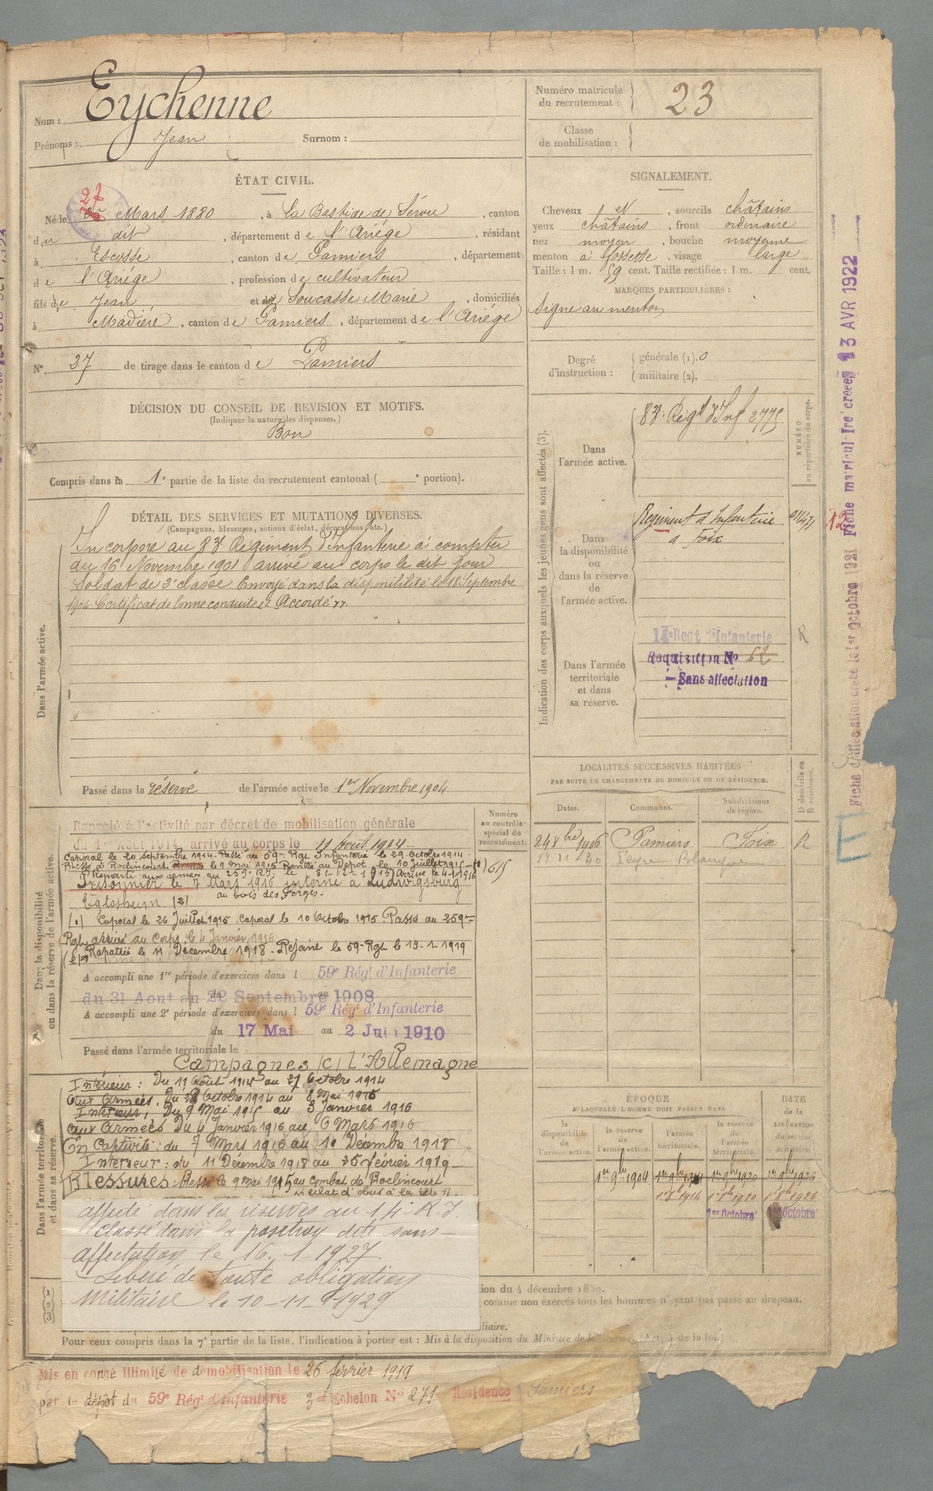 Nom : Eychenne
Prénoms : Jean Surnom :
Numéro matricule du recrutement : 23
Classe de mobilisation :
ÉTAT CIVIL.
Né le 27 Mars 1880, à La Bastide de , canton
d dit, département de l'Ariége, résidant
à Escosse, canton de Pamiers, département
de l'Ariége, profession de cultivateur
fils de Jean et de Soucasse Marie, domiciliés
à Madière, canton de Pamiers, département de l'Ariége
N° 27 de tirage dans le canton de Pamiers
SIGNALEMENT.
Cheveux , sourcils châtains
yeux châtains, front ordinaire
nez moyen, bouche moyenne
menton à fossette, visage large
Taille : 1 m. 59 cent. Taille rectifiée : 1 m. cent.
MARQUES PARTICULIÈRES :
signe au menton
Degré d'instruction : générale (1). 0
militaire (2).
DÉCISION DU CONSEIL DE REVISION ET MOTIFS.
(Indiquer la nature des dispenses.)
Bon
Compris dans la 1e partie de la liste du recrutement cantonal ( e portion).
DÉTAIL DES SERVICES ET MUTATIONS DIVERSES.
(Campagnes, blessures, actions d'éclat, décorations, etc.)
Dans l'armée active.
Incorporé au 83e Régiment d'Infanterie à compter
du 16 Novembre 1901 arrivé au corps le dit jour
Soldat de 2e classe Envoyé dans la disponibilité le 18 Septembre
1904. Certificat de bonne conduite Accordé
Passé dans la réserve de l'armée active le 1er Novembre 1904
Indication des corps auxquels les jeunes gens sont affectés (3).
NUMÉRO au répertoire du corps.
Dans l'armée active.
83e Régt d'Inf 2775
Dans la disponibilité ou dans la réserve de l'armée active.
Régiment d'Infanterie
à Foix
Dans l'armée territoriale et dans sa réserve.
14e Regt d'Infanterie
Réquisition N° 62
Sans affectation
R
LOCALITÉS SUCCESSIVES HABITÉES
PAR SUITE DE CHANGEMENTS DE DOMICILE OU DE RÉSIDENCE.
D domicile ou R résidence.
Dates. Communes. Subdivisions de région.
24 Xbre 1906 Pamiers Foix R
Dans la disponibilité ou dans la réserve de l'armée active.
Numéro au contrôle spécial du recrutement.
Rappelé à l'activité par décret de mobilisation générale
du 1er Août 1914 arrivé au corps le 11 août 1914
Caporal le 20 septembre 1914. Passé au 59e Rgt Infanterie le 29 octobre 1914
Blessé à Roclincourt le 9 mai 1915 Rentré au Dépôt le 10 juillet 1915
Prisonnier le 7 Mars 1916 interné à Ludwigsburg
Eglosheim (2) au bois des Forges
Caporal le 26 Juillet 1915. Caporal le 10 Octobre 1915 Passé au 259e
Rgt arrivé au Corps le 4 Janvier 1916
Rapatrié le 11 Décembre 1918 - Rejoint le 59e Rgt le 13-1-1919
A accompli une 1re période d'exercices dans l 59e Rég. d'Infanterie
du 31 Aout au 22 Septembre 1908
A accompli une 2e période d'exercices dans l 59e Rég. d'Infanterie
du 17 Mai au 2 Juin 1910
Passé dans l'armée territoriale le
Campagnes (c) l'Allemagne
Dans l'armée territoriale et dans sa réserve.
Intérieur : Du 11 Août 1914 au 27 Octobre 1914
aux Armées, Du 28 Octobre 1914 au 8 Mai 1915
Intérieur, Du 9 Mai 1915 au 3 Janvier 1916
aux Armées Du 4 Janvier 1916 au 6 Mars 1916
En Captivité : du 7 Mars 1916 au 10 Décembre 1918
Intérieur : du 11 Décembre 1918 au 25 février 1919
Blessures : Blessé le 9 mai 1915 au combat de Roclincourt
éclat d'obus à la tête
affecté dans les réserves au 14e R I
Classé dans la position dite sans
affectation le 16. 1. 1927.
Libéré de toute obligation
Militaire le 10-11-1929
ÉPOQUE
À LAQUELLE L'HOMME DOIT PASSER DANS
DATE de la LIBÉRATION DU SERVICE
la disponibilité de l'armée active. la réserve de l'armée active. l'armée territoriale. la réserve de l'armée territoriale.
1er 9bre 1904
1er Octobre
Octobre
ion du 4 décembre 1889.
comme non exercés tous les hommes n'ayant pas passé au drapeau.
Pour ceux compris dans la 7e partie de la liste, l'indication à porter est : Mis à la disposition du Ministre de la loi)
Mis en congé Illimité de démobilisation le 26 février 1919
par le dépôt du 59e Rég. d'Infanterie 3e Echelon N° 271 Résidence Pamiers
Fiche d'affectation créée le 1er octobre 1921 Fiche matricule créée le 13 AVR 1922